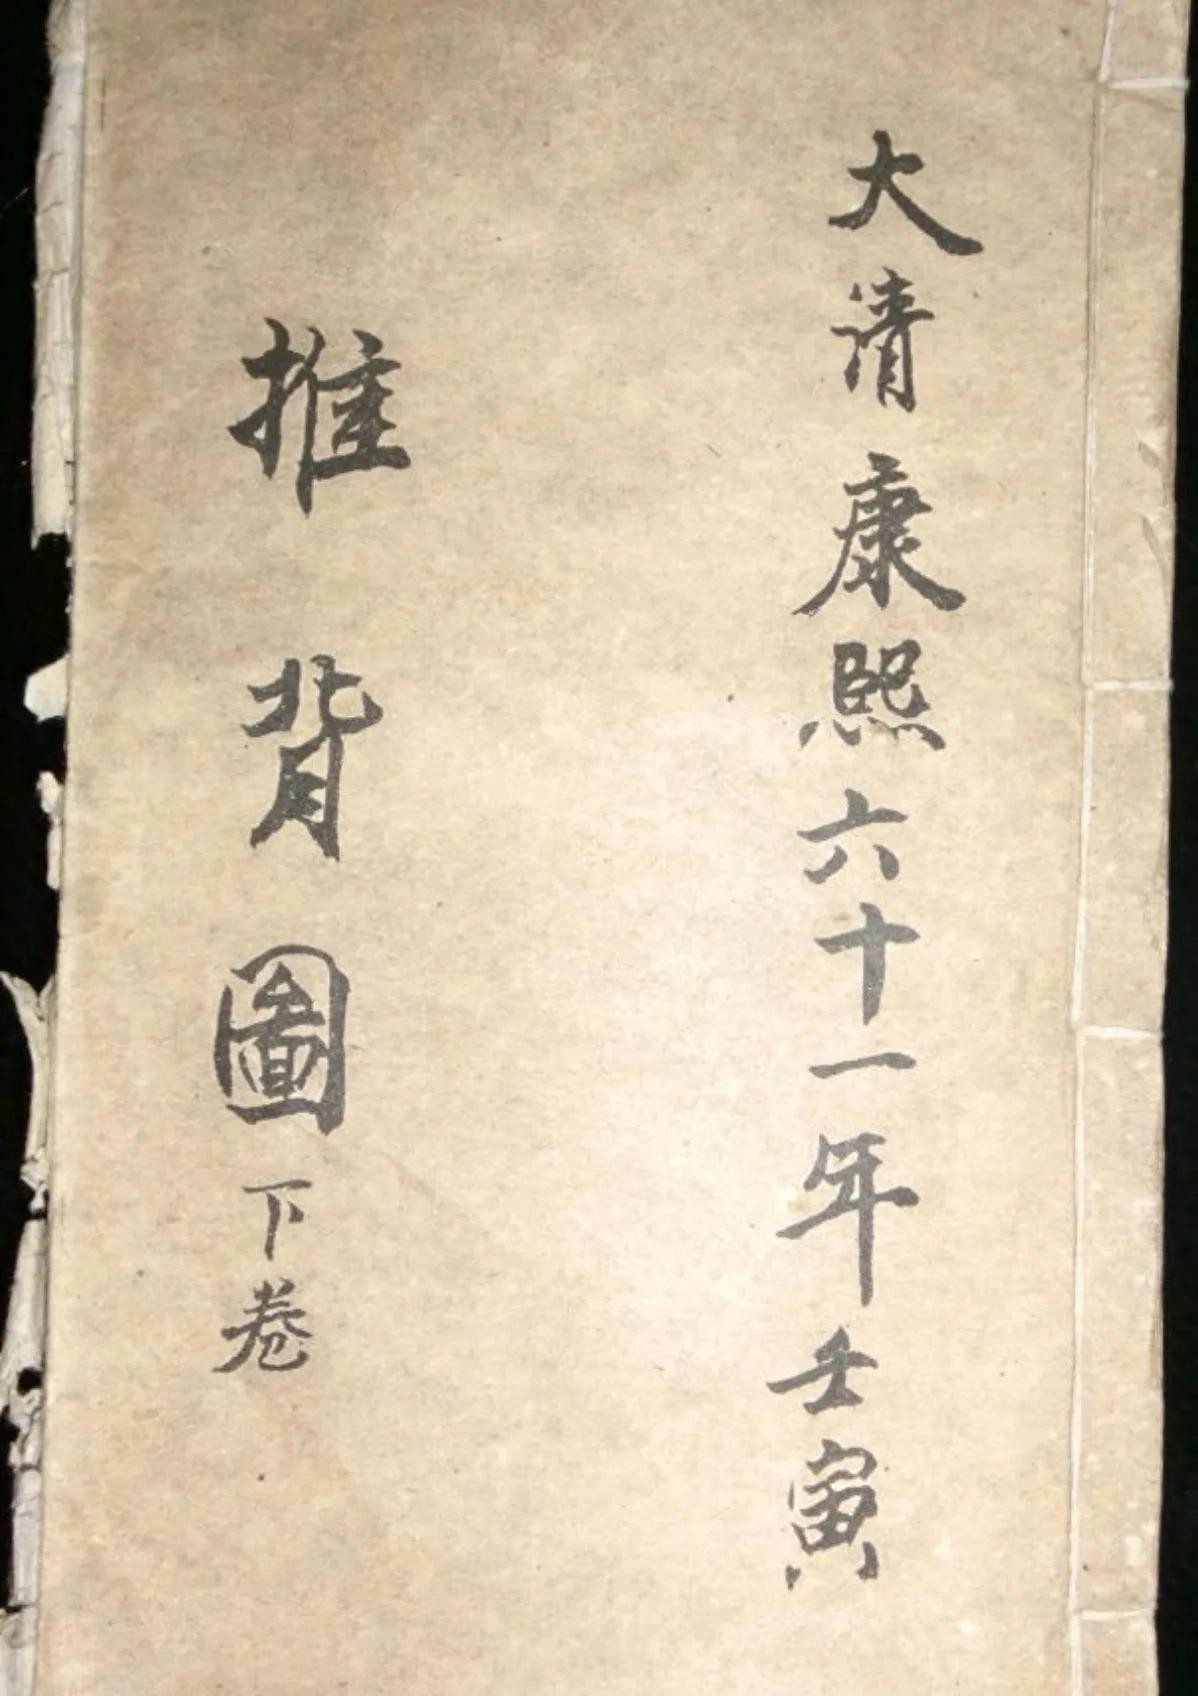 大清康熙六十一年壬寅
推背圖下卷